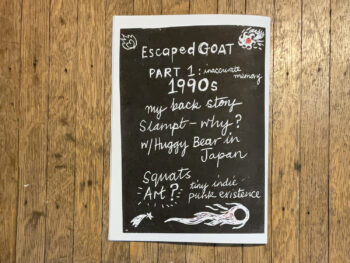 Escaped GOAT
PART 1: inaccurate
memory
1990s
my back story
Slampt - why?
w/Huggy Bear in
Japan
Squats
Art? tiny indie -
punk existence